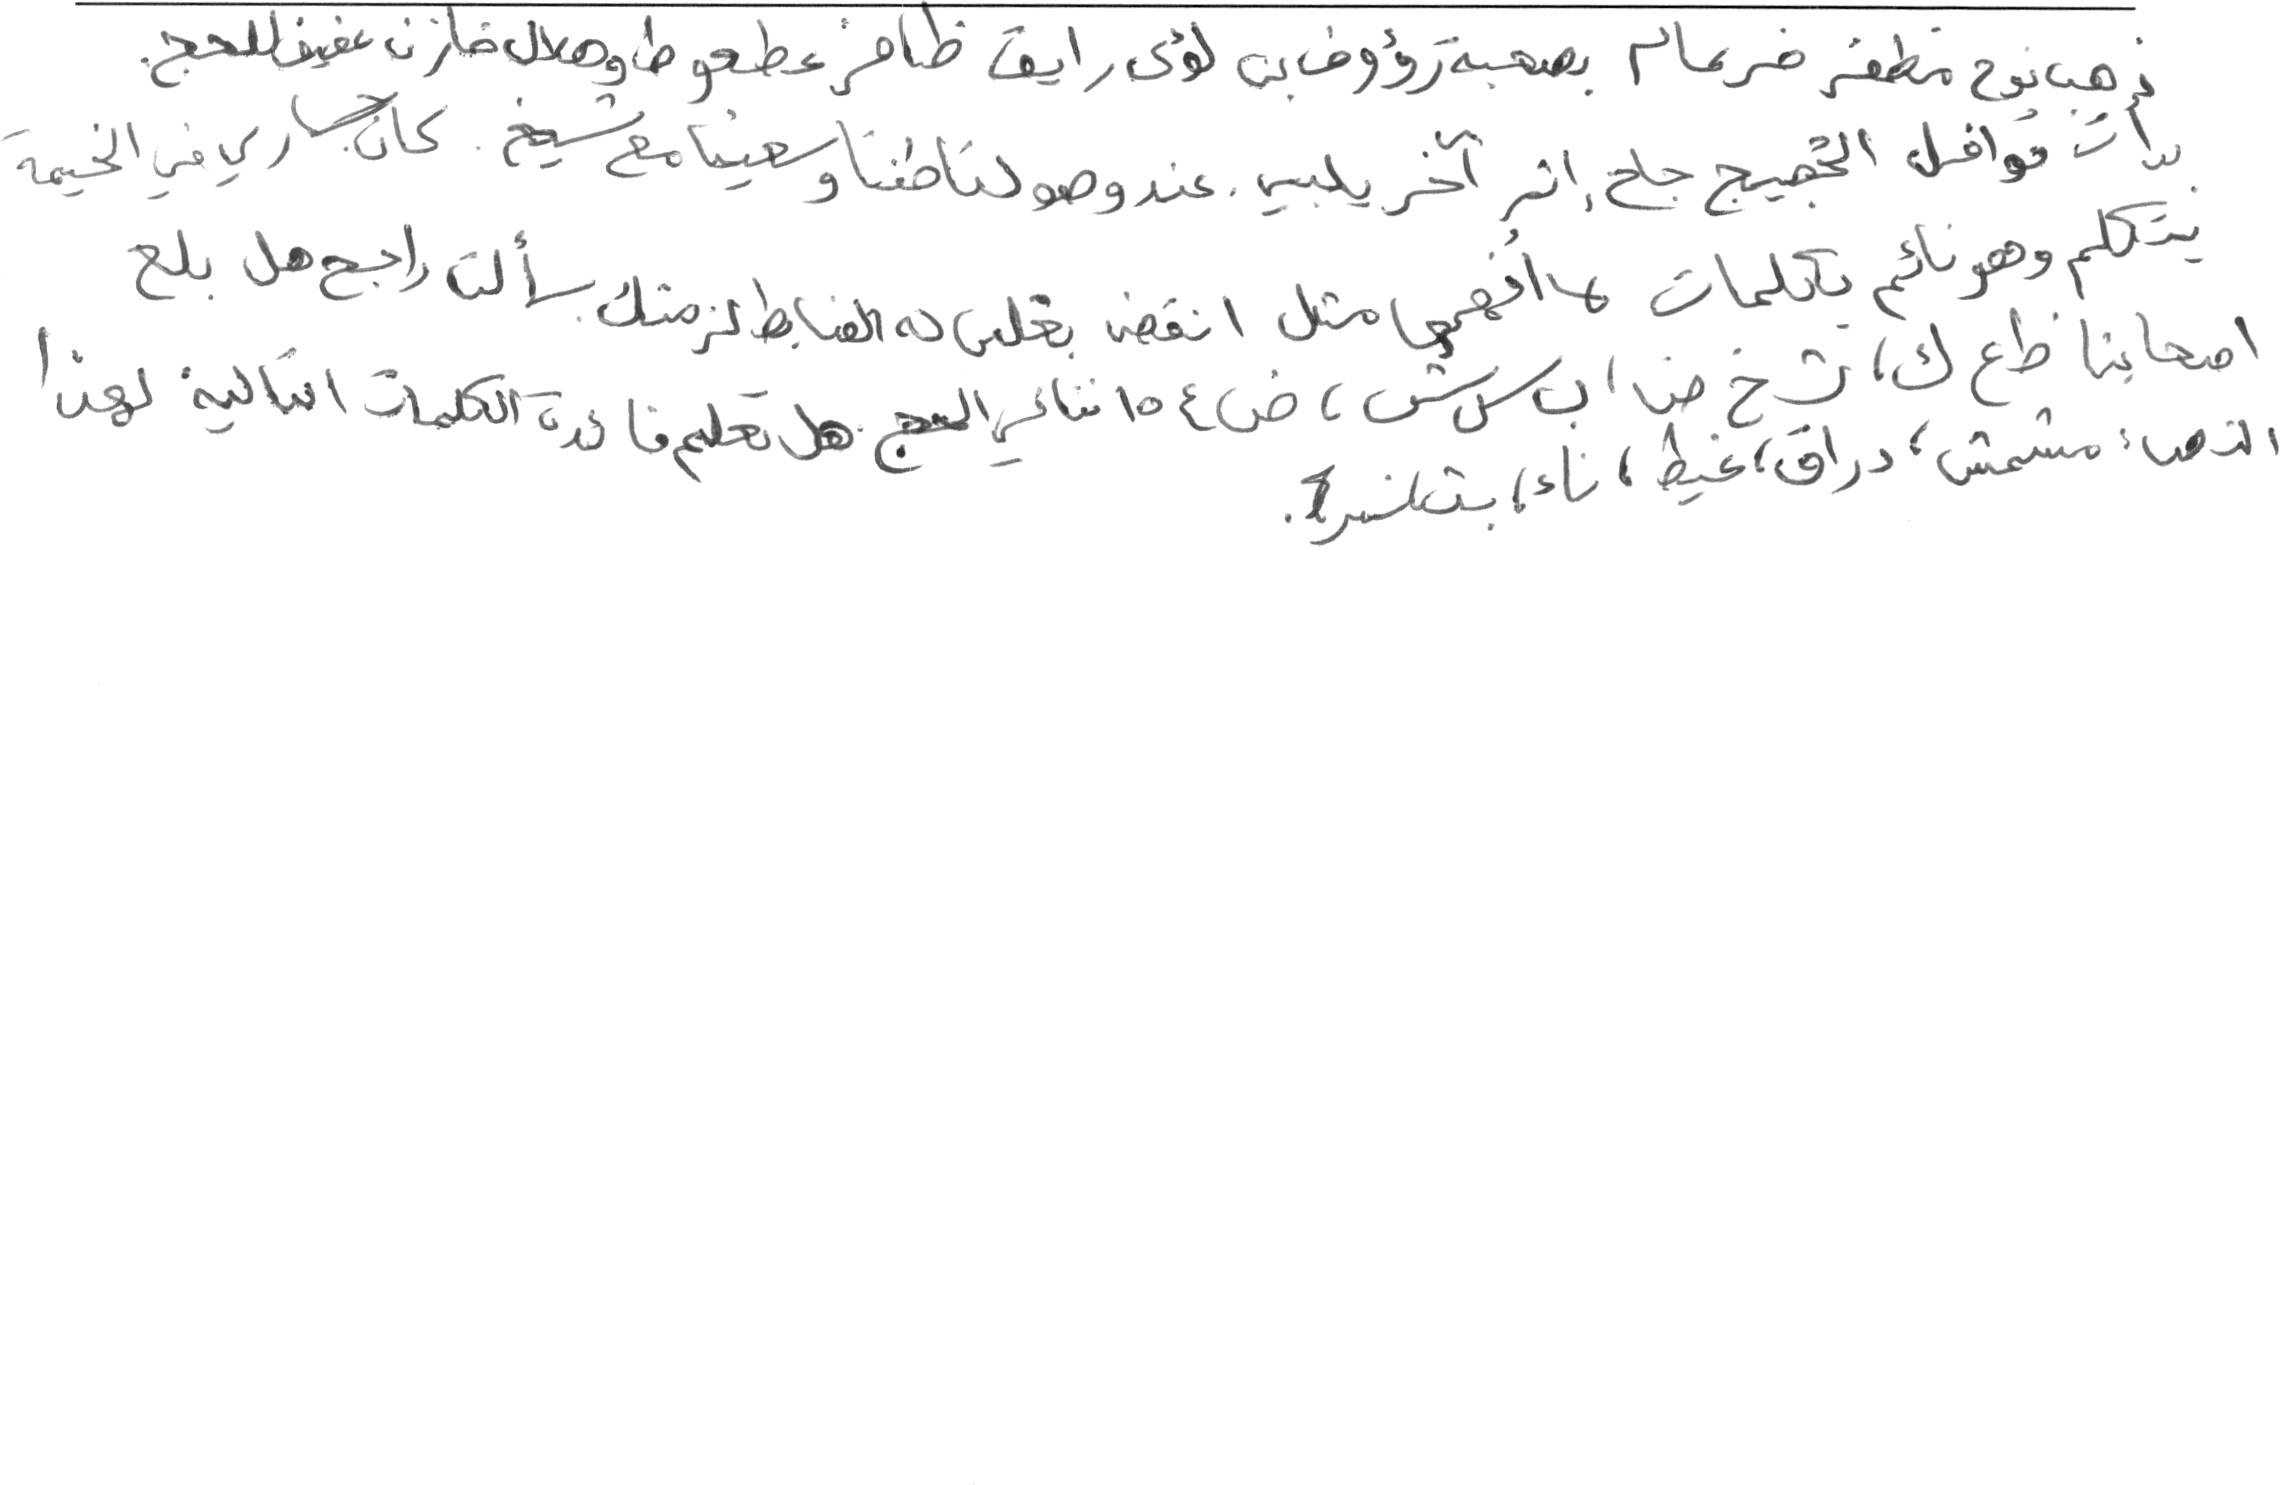 ذهب نوح مظفر ضرغام بصحبة رؤوف بن لؤي رايق ظافر عطعوط وهلال خازن عفيف للحج.
بدأت قوافل الحجيج حاج إثر آخر يلبي. عند وصولنا طفنا وسعينا مع شيخ. كان جاري في الخيمة
يتكلم وهو نائم بكلمات لا أفهمها مثل انقض بغلس له الضابط لزمتك. سألت راجح هل بلغ
اصحابنا ظ ع ك، ث خ ض، ب س ش، ض ٤ ١٥ نتائج الحج. هل تعلم فائدة الكلمات التالية لهذا
النص: مشمش، دراق، غيظ، ناء،